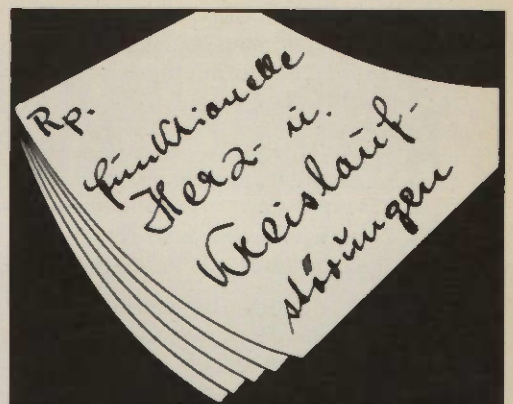 Rp.
funktionelle
Herz- u.
Kreislauf-
störungen